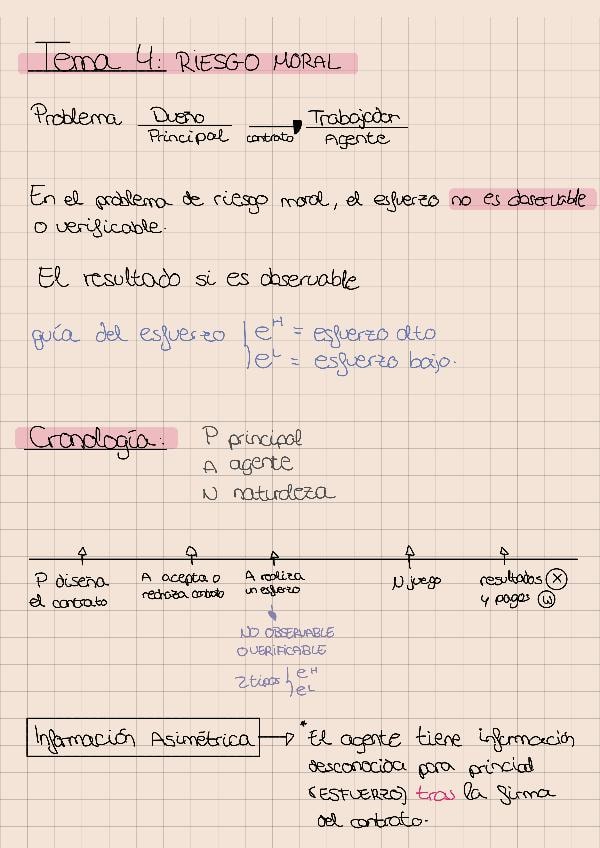 Tema 4: RIESGO MORAL
Problema Dueño Trabajador
Principal contrato Agente
En el problema de riesgo moral, el esfuerzo no es observable
o verificable.
El resultado si es observable
guía del esfuerzo e^H = esfuerzo alto
e^L = esfuerzo bajo.
Cronología: P principal
A agente
N naturaleza
P diseña A acepta o A realiza N juego resultados (X)
el contrato rechaza contrato un esfuerzo y pagos (W)
NO OBSERVABLE
O VERIFICABLE
2 tipos e^H
e^L
Información Asimétrica * El agente tiene información
desconocida para princial
(ESFUERZO) tras la firma
del contrato.